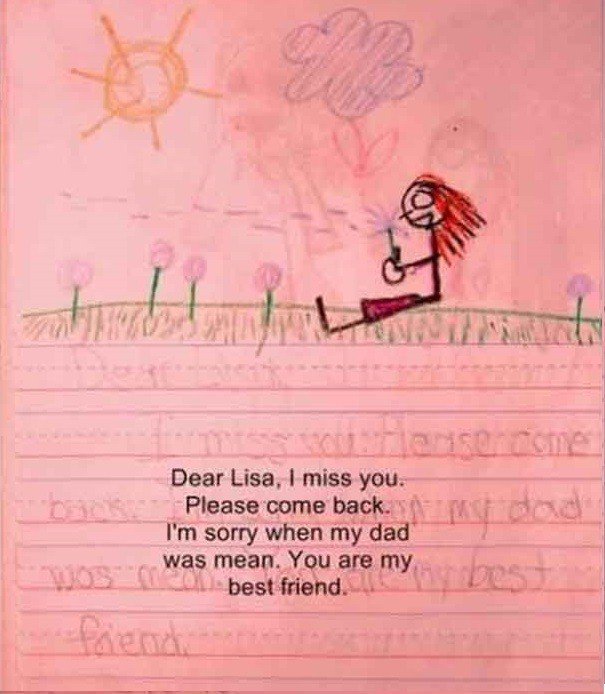 Dear Lisa,
I miss you. Please come
back. my dad
was mean. are my best
friend.
Dear Lisa, I miss you.
Please come back.
I'm sorry when my dad
was mean. You are my
best friend.